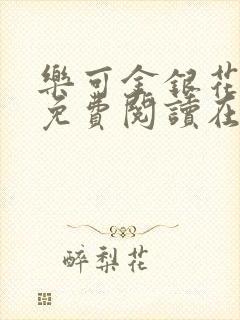 樂可金銀花
免費閱讀在
醉梨花